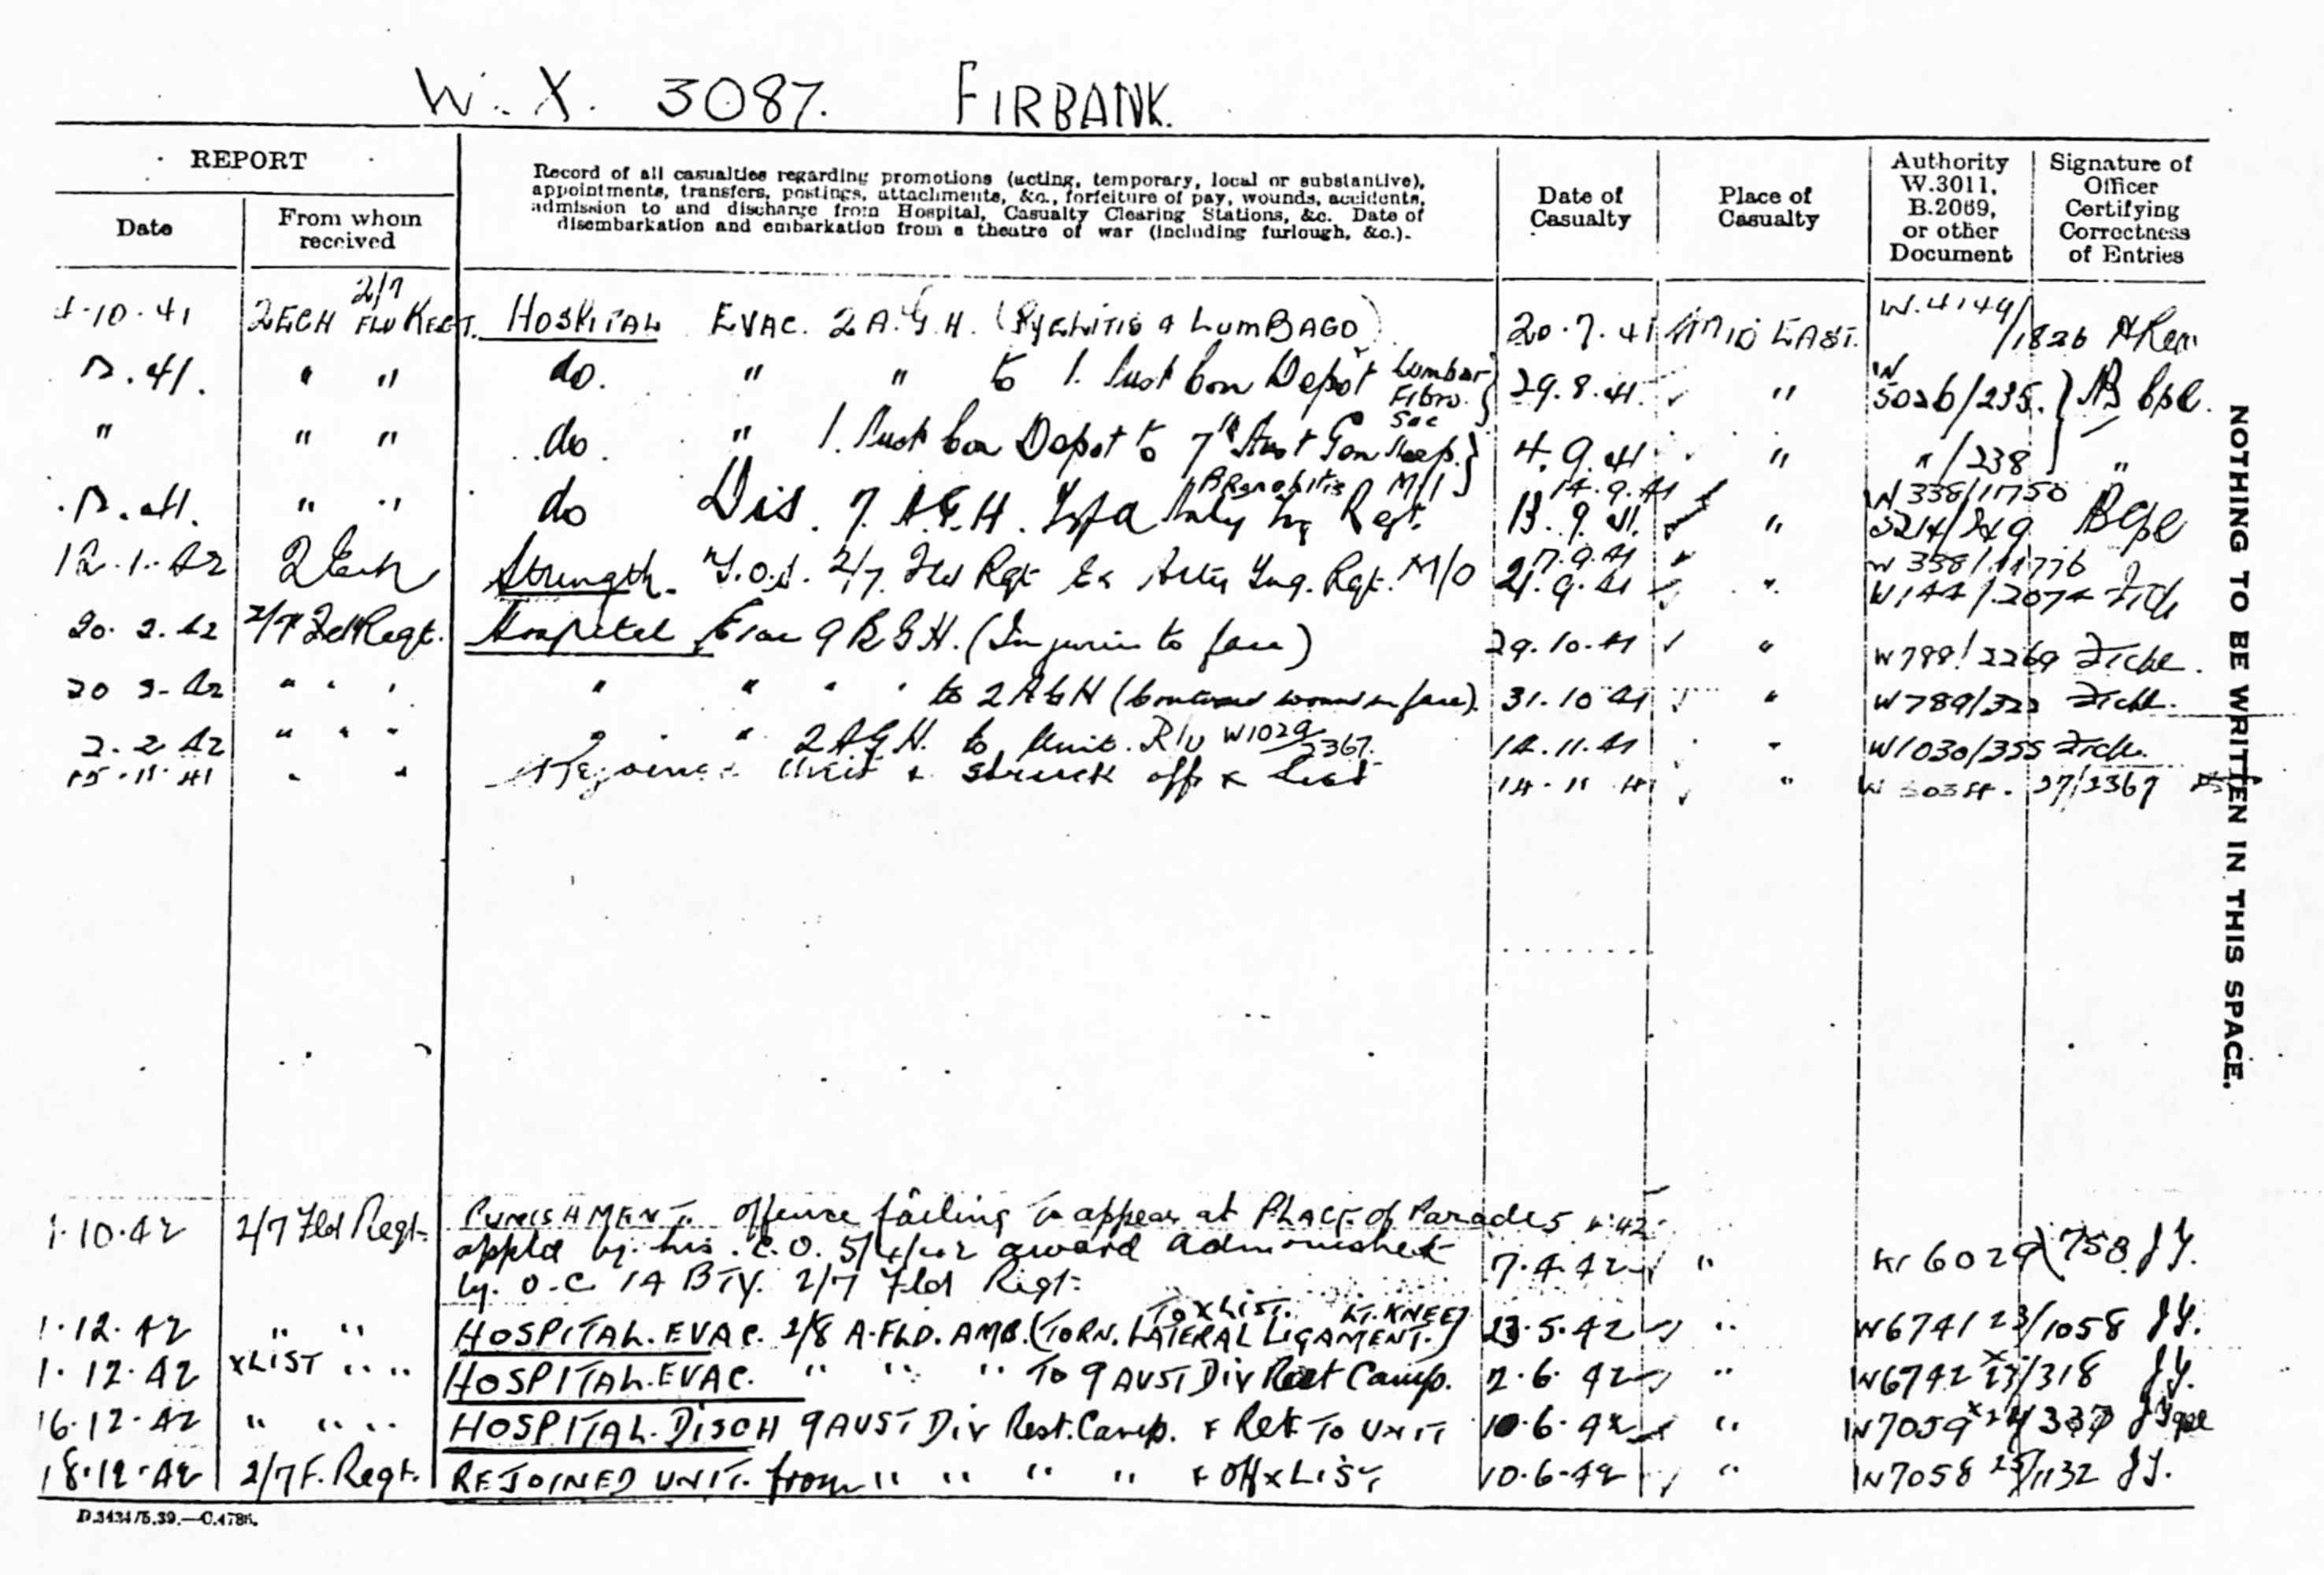 W. X. 3087. FIRBANK.
REPORT
Date
From whom received
Record of all casualties regarding promotions (acting, temporary, local or substantive),
appointments, transfers, postings, attachments, &c., forfeiture of pay, wounds, accidents,
admission to and discharge from Hospital, Casualty Clearing Stations, &c. Date of
disembarkation and embarkation from a theatre of war (including furlough, &c.).
Date of Casualty
Place of Casualty
Authority W.3011, B.2069, or other Document
Signature of Officer Certifying Correctness of Entries
2/7
10.41 2 ECH FLD REGT. HOSPITAL EVAC. 2 A.G.H. (PYELITIS & LUMBAGO) 20.7.41 MID EAST. W.4149/1826
.41. " " do. " " to 1. Aust Con Depot Lumbar Fibro. 29.8.41. " W 5026/235.
" " " do. " 1. Aust Con Depot to 7th Aust Gen Hosp. 4.9.41 " " /238 "
.41. " " do Dis. 7. A.G.H. 14.9.41 13.9.41. " W 338/11750
12.1.42 2 Ech Strength. T.O.S. 2/7. Fld Rgt Ex Arty Trg. Rgt. M/O 17.9.41 21.9.41 " W 338/11776 W144/2074
20.2.42 2/7 Fld Regt. Hospital Evac 9 A G H. (Injuries to face) 29.10.41 " W799/2269
20 2.42 " " " " " to 2 AGH (contused wound on face). 31.10 41 " W789/322
2.2 42 " " " " 2 AGH. to Unit. R/U W1029/2367. 14.11.41 " W1030/355
15.11.41 " " Rejoined Unit & struck off X List 14.11 41 " 27/2367
1.10.42 2/7 Fld Regt. PUNISHMENT. offence failing to appear at PLACE of Parade 5 4.42.
appld by his C.O. 5/4/42 award admonished
by O.C. 14 BTY. 2/7 Fld Regt. 7.4.42 " W 6029 758 JY.
TO X LIST. LT. KNEE
1.12.42 " " HOSPITAL. EVAC. 2/8 A. FLD. AMB. (TORN. LATERAL LIGAMENT.) 23.5.42 " W6741 23/1058 JY.
1.12.42 X LIST " " HOSPITAL. EVAC. " " " TO 9 AUST DIV Rest Camp. 2.6.42 " W6742 X 23/318 JY.
16.12.42 " " " HOSPITAL. DISCH 9 AUST DIV Rest. Camp. & Ret TO UNIT 10.6.42 " W7059 X 24/337
18.12.42 2/7 F. Regt. REJOINED UNIT. from " " " " & off X LIST 10.6.42 " W7058 25/1132 JY.
D.3434/5.39.—C.4786.
NOTHING TO BE WRITTEN IN THIS SPACE.